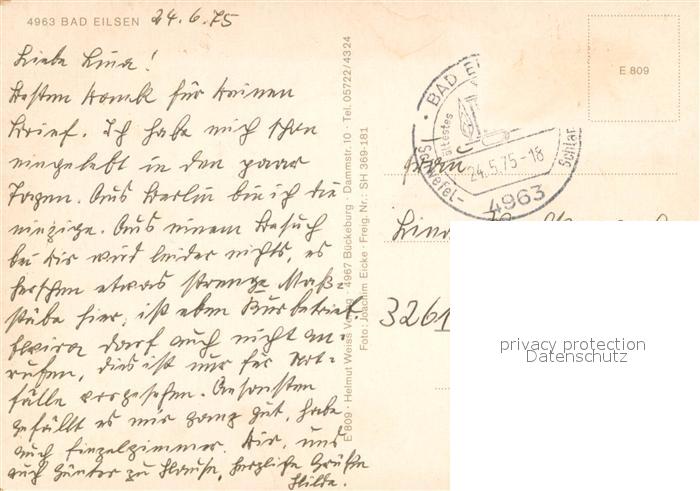 4963 BAD EILSEN 24.6.75
Liebe Lina!
Besten Dank für Deinen
Brief. Ich habe mich schon
eingelebt in den paar
Tagen. Aus Berlin bin ich die
einzige. Aus einem Besuch
bei Dir wird leider nichts, es
herrschen etwas strenge Maß-
stäbe hier, ist eben Kurbetrieb.
Elvira darf auch nicht an-
rufen, dies ist nur für Not-
fälle vorgesehen. Ansonsten
gefällt es mir ganz gut, habe
auch Einzelzimmer. Dir, und
auch Günter zu Hause, herzliche Grüße
Hilde.
E 809 · Helmut Weiss Verlag · 4967 Bückeburg · Dammstr. 10 · Tel. 05722/4324
Foto: Joachim Eicke · Freig. Nr.: SH 369-181
E 809
BAD E
ältestes
Schwefel-
Schlam
24.5.75-18
4963
Frau
Lina
3261
privacy protection
Datenschutz